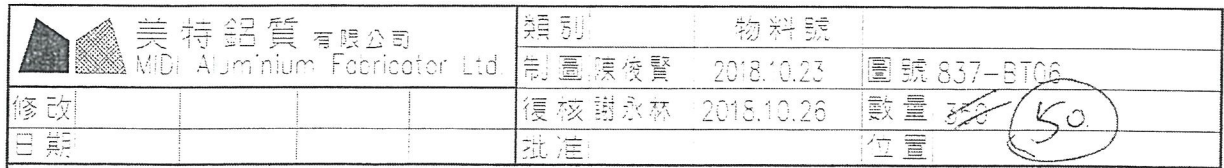 美特鋁質有限公司
MIDI Aluminium Fabricator Ltd.
類別 物料號
制圖 陳俊賢 2018.10.23 圖號 837-BT06
修改 復核 謝永林 2018.10.26 數量 350 50
日期 批准 位置